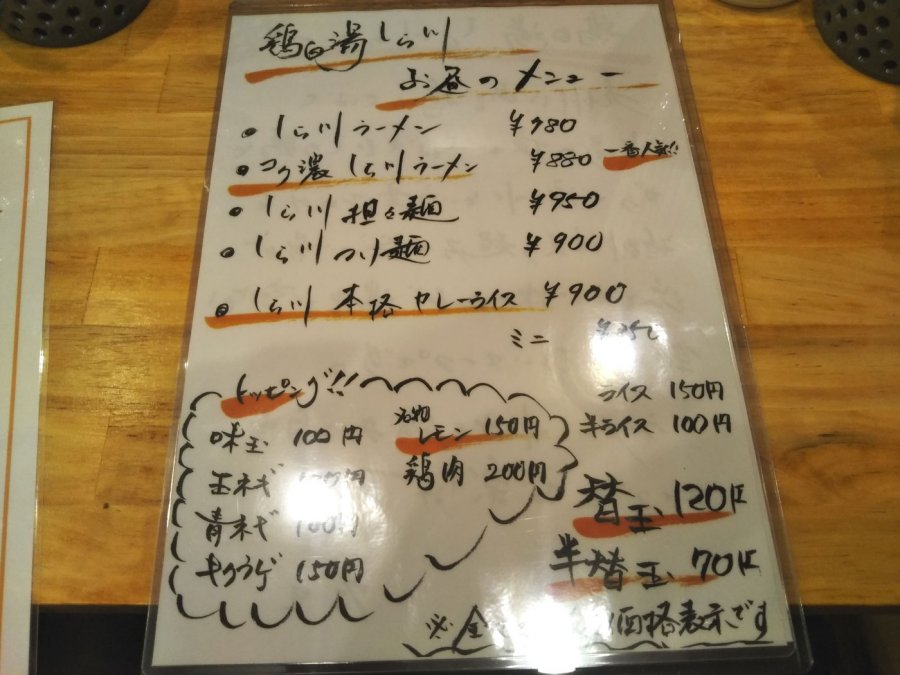 鶏白湯しら川
お昼のメニュー
しら川ラーメン ¥780
コク濃しら川ラーメン ¥880 一番人気!!
しら川担々麺 ¥950
しら川つけ麺 ¥900
しら川 本格カレーライス ¥900
ミニ
トッピング!!
味玉 100円
玉ネギ
青ネギ 100円
キクラゲ 150円
名物レモン 150円
鶏肉 200円
ライス 150円
半ライス 100円
替玉 120円
半替玉 70円
※全 価格表示です